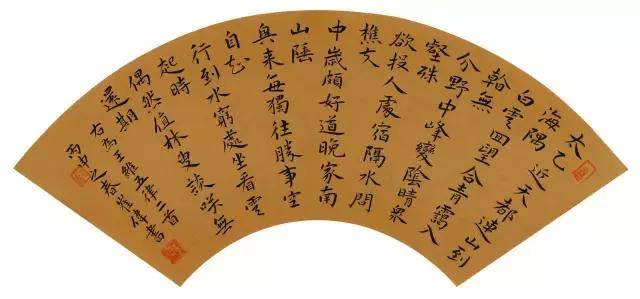 太乙近天都連山到
海隅
白雲回望合青靄入
看無
分野中峰變陰晴衆
壑殊
欲投人處宿隔水問
樵夫
中歲頗好道晚家南
山陲
興来每獨往勝事空
自知
行到水窮處坐看雲
起時
偶然值林叟談咲無
還期
右爲王維五律二首
丙申之春崔偉書